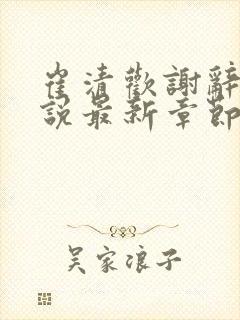 崔清歡謝辭
說最新章節
吳家浪子